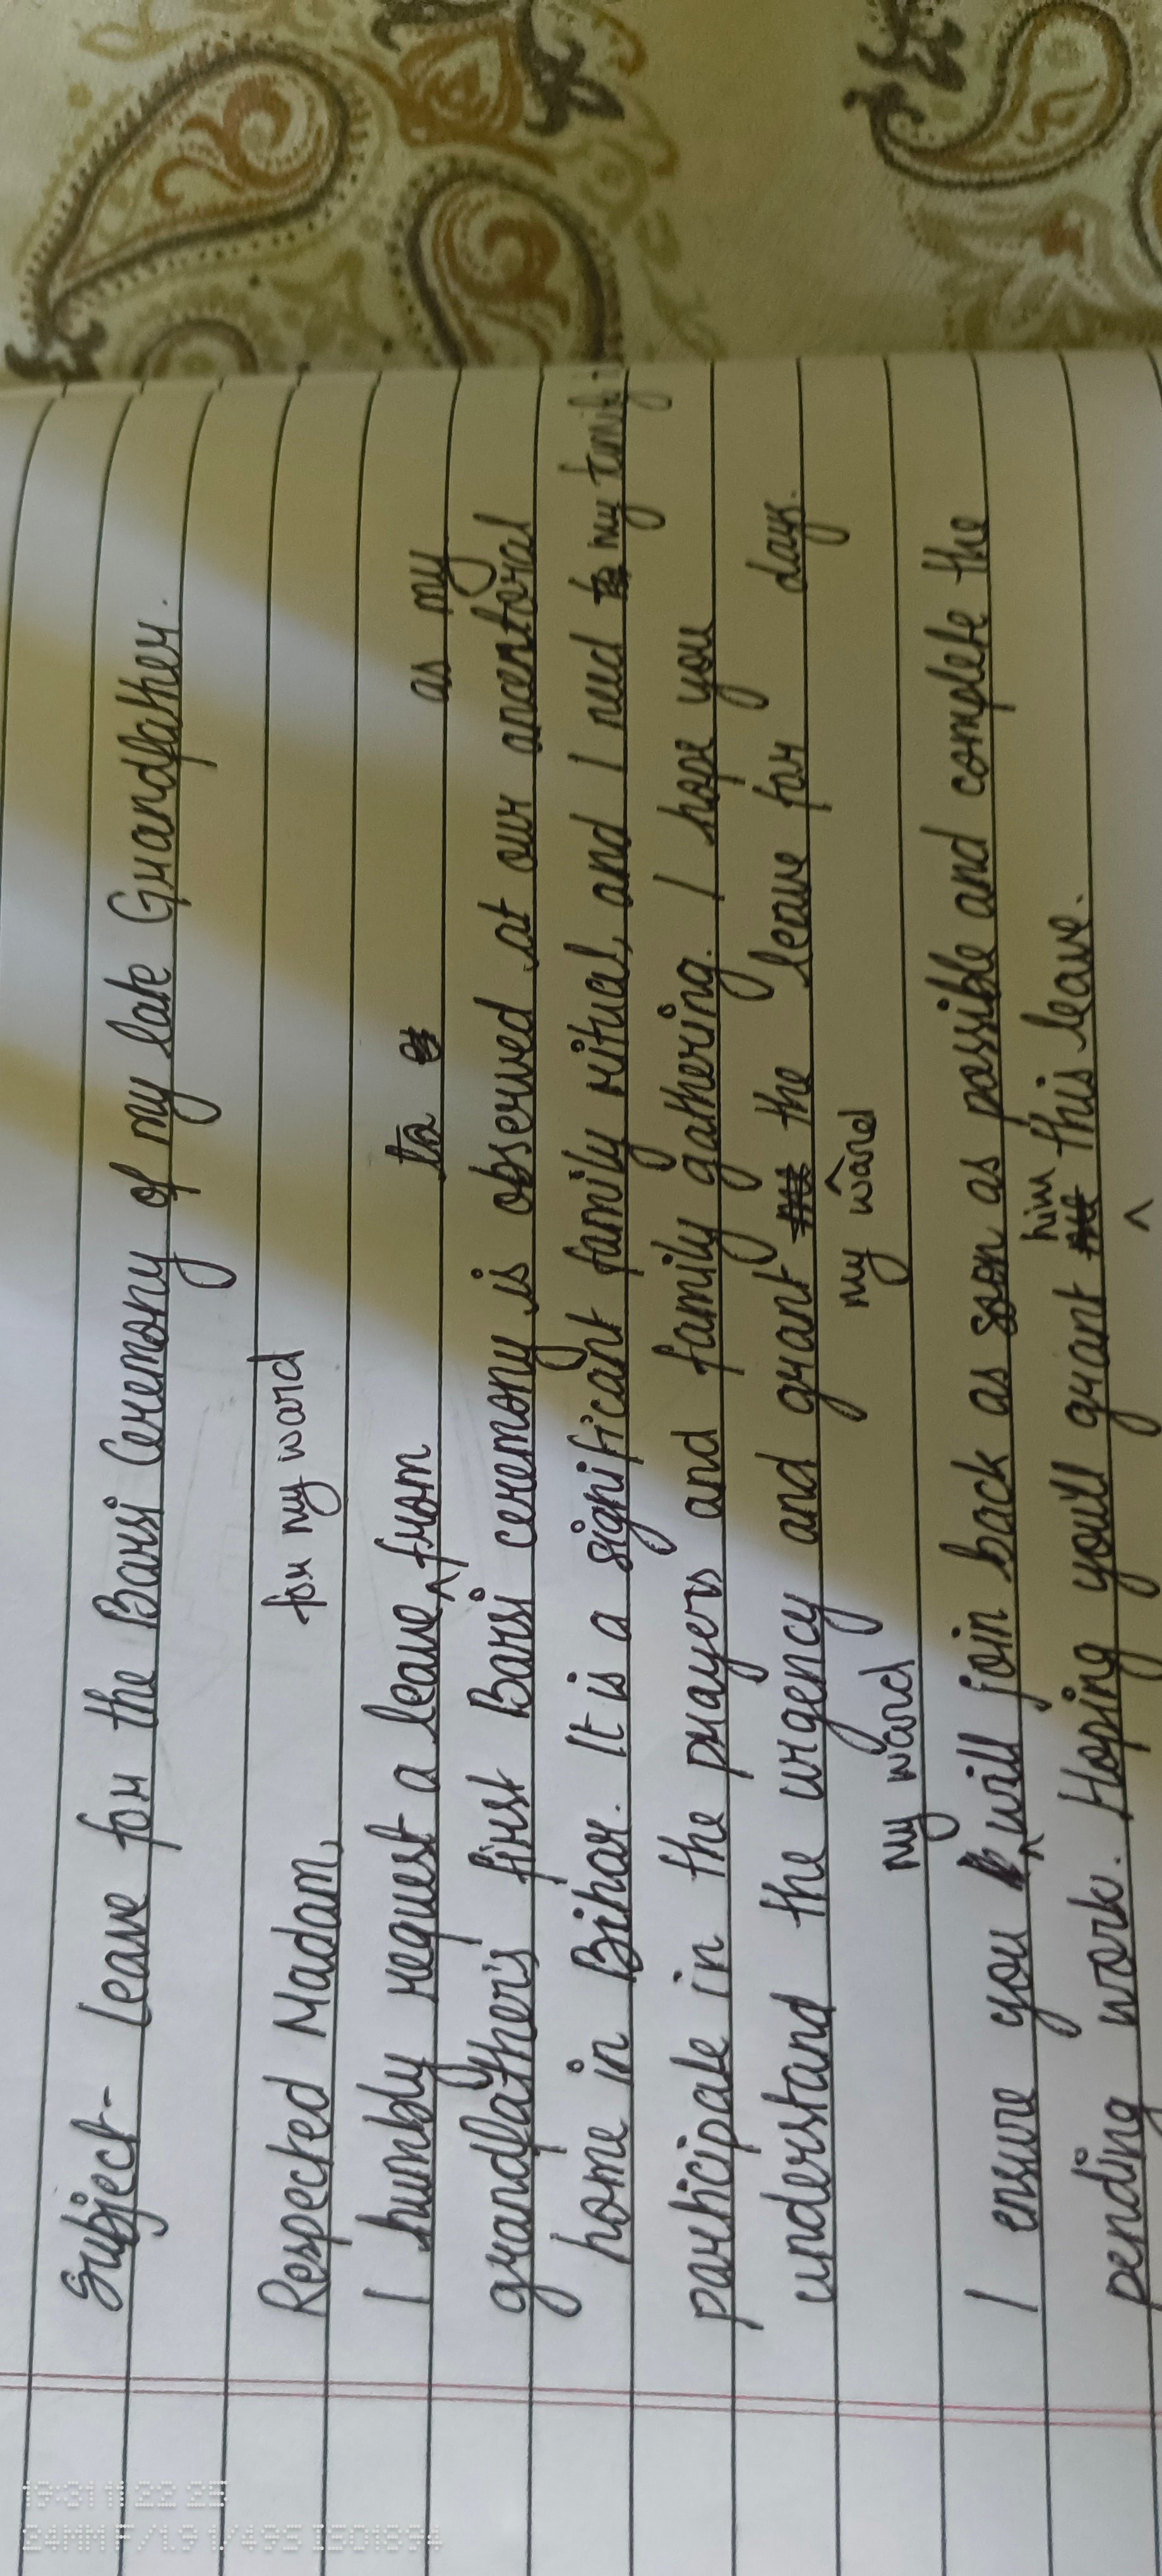 Subject- Leave for the Barsi Ceremony of my late Grandfather.
Respected Madam,
for my ward
I humbly request a leave ^ from to as my
grandfather's first Barsi ceremony is observed at our ancentoral
home in Bihar. It is a significant family ritual, and I need my family
participate in the prayers and family gathering. I hope you
understand the urgency and grant the leave for days.
my ward
my ward
I ensure you ^ will join back as soon as possible and complete the
him
pending work. Hoping you'll grant this leave.
^
19-21 11 22 23
24MM F/1.9 1/49S ISO1694